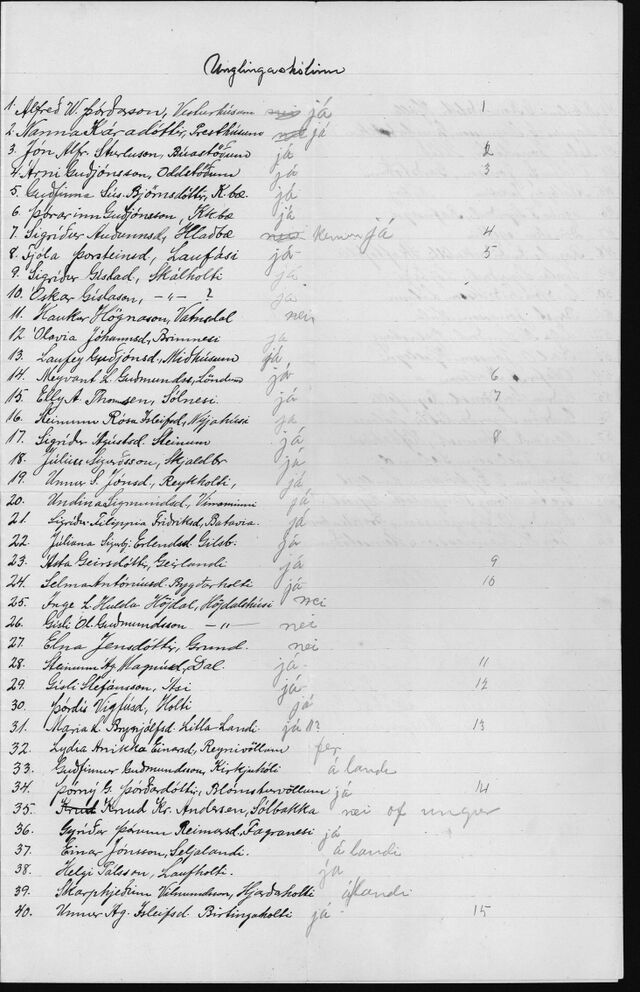 Unglingaskólinn
1. Alfreð W. Þórðarson, Vesturhúsum nei já 1
2. Nanna Káradóttir, Presthúsum nei já
3. Jón Alfr. Sturluson, Búastöðum já 2
4. Árni Guðjónsson, Oddstöðum já 3
5. Guðfinna Sús. Björnsdóttir, K.bæ. já
6. Þórarinn Guðjónsson, Kk.bæ já
7. Sigríður Auðunnsd., Hlaðbæ nei kemur já 4
8. Fjóla Þorsteinsd, Laufási já 5
9. Sigríður Gíslad, Skálholti já
10. Óskar Gíslason, -"- ? já
11. Haukur Högnason, Vatnsdal nei
12. Ólavía Jóhannsd, Brimnesi já
13. Laufey Guðjónsd., Miðhúsum já
14. Meyvant L. Guðmundss, Löndum já 6
15. Elly A. Thomsen, Sólnesi já 7
16. Steinunn Rósa Ísleifsd, Nýjahúsi já
17. Sigríður Ágústsd. Steinum já 8
18. Júlíus Sigurðsson, Skjaldbr já
19. Unnur S. Jónsd, Reykholti, já
20. Undína Sigmundsd, Vinaminni já
21. Sigríður Filippía Friðriksd, Batavía. já
22. Júlíana Sigurbj. Erlendsd. Gilsb. já
23. Ásta Geirsdóttir, Geirlandi já 9
24. Selma Antóníusd. Byggðarholti já 10
25. Inga L. Hulda Höjdal, Höjdalshúsi nei
26. Gísli Ól. Guðmundsson -"- nei
27. Elna Jensdóttir, Grund. nei
28. Steinunn Ag. Magnúsd, Dal. já 11
29. Gísli Stefánsson, Ási já 12
30. Þórdís Vigfúsd, Holti já
31. María L. Brynjólfsd. Litla-Landi já 13
32. Lydía Anikka Einarsd, Reynivöllum fer
33. Guðfinnur Guðmundsson, Kirkjuhóli á landi
34. Þórný G. Þórðardóttir, Blómsturvöllum já 14
35. Knud Knud Kr. Andersen, Sólbakka nei of ungur
36. Gyríður Þórunn Reimarsd, Fagranesi já
37. Einar Jónsson, Seljalandi. á landi
38. Helgi Pálsson, Laufholti. já
39. Skarphjeðinn Vilmundsson, Hjarðarholti á landi
40. Unnur Ag. Ísleifsd. Birtingaholti já 15